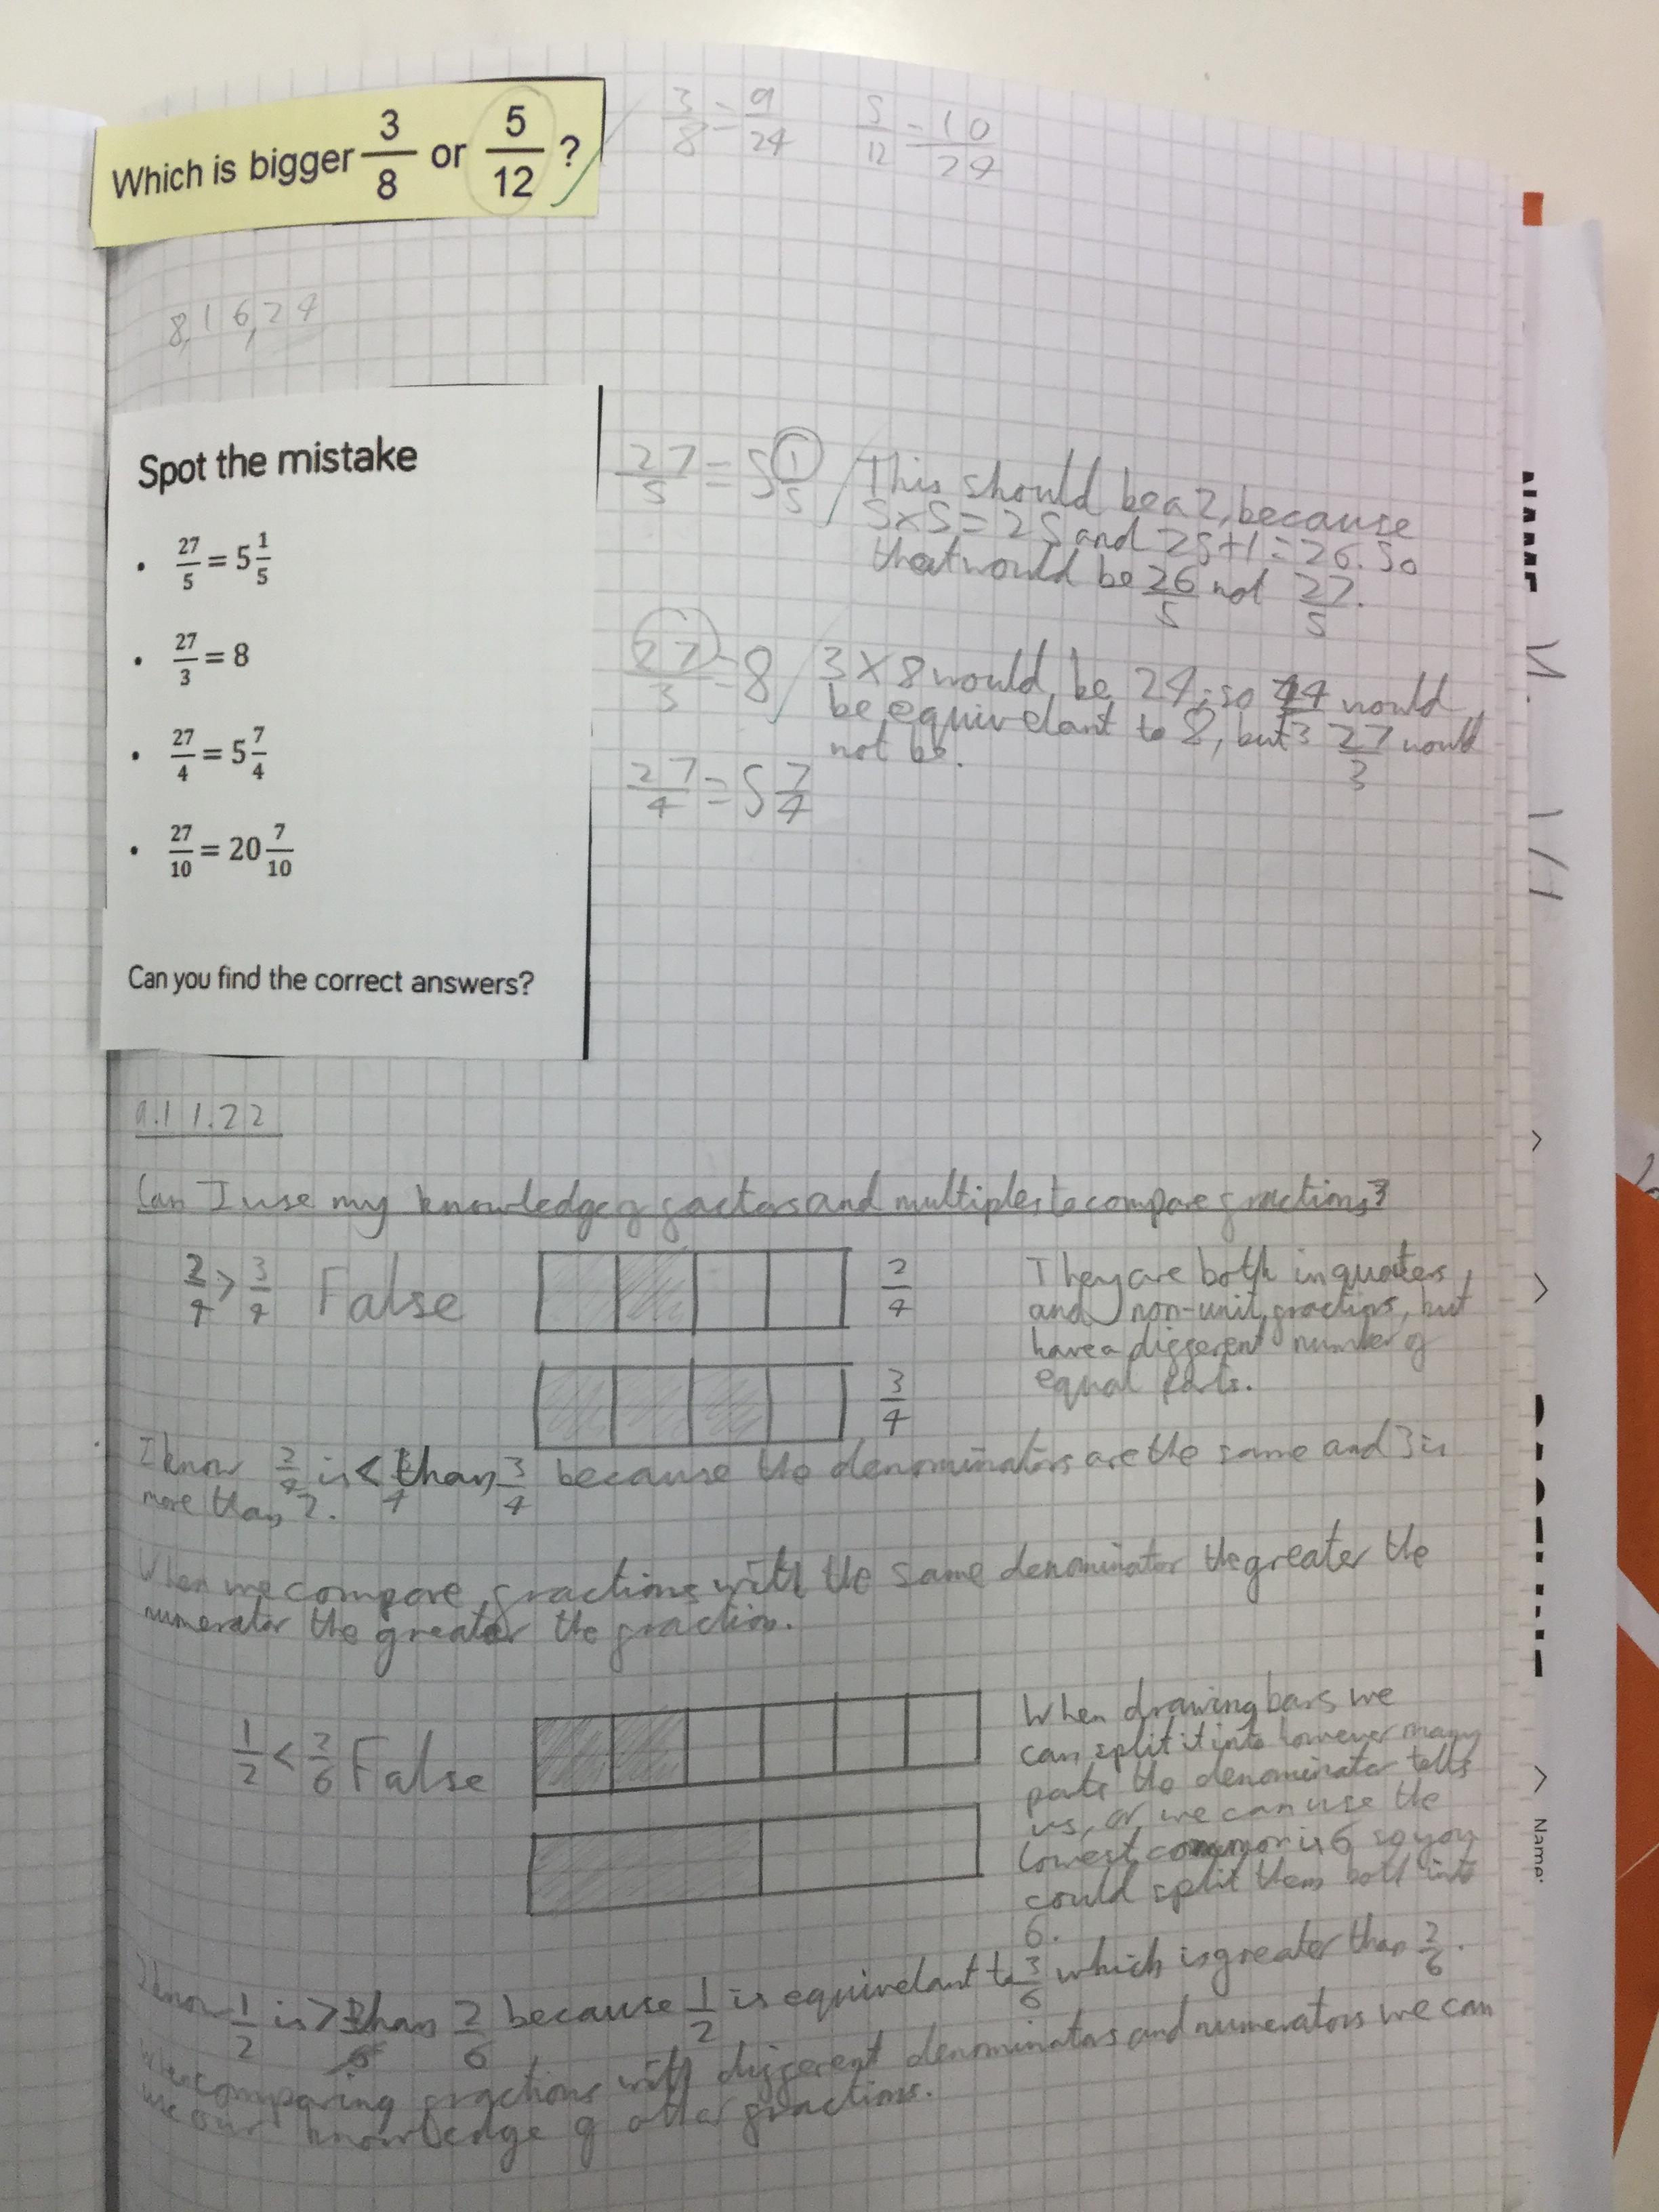 Which is bigger 3/8 or 5/12 ?
3/8 = 9/24 5/12 = 10/24
8, 16, 24
Spot the mistake
• 27/5 = 5 1/5
• 27/3 = 8
• 27/4 = 5 7/4
• 27/10 = 20 7/10
Can you find the correct answers?
27/5 = 5 1/5 This should be a 2, because
5×5=25 and 25+1=26. So
that would be 26/5 not 27/5.
27/3 = 8 3×8 would be 24, so 24/3 would
be equivelant to 8, but 27/3 would
not be.
27/4 = 5 7/4
9.11.22
Can I use my knowledge of factors and multiples to compare fractions?
2/4 > 3/4 False
2/4
3/4
They are both in quaters,
and non-unit fractions, but
have a different number of
equal parts.
I know 2/4 is < than 3/4 because the denominators are the same and 3 is
more than 2.
When we compare fractions with the same denominator the greater the
numerator the greater the fraction.
1/2 < 2/6 False
When drawing bars we
can split it into however many
parts the denominator tells
us, or we can use the
lowest common is 6 so you
could split them both into
6.
I know 1/2 is > than 2/6 because 1/2 is equivelant to 3/6 which is greater than 2/6.
When comparing fractions with different denominators and numerators we can
use our knowledge of other fractions.
Name: